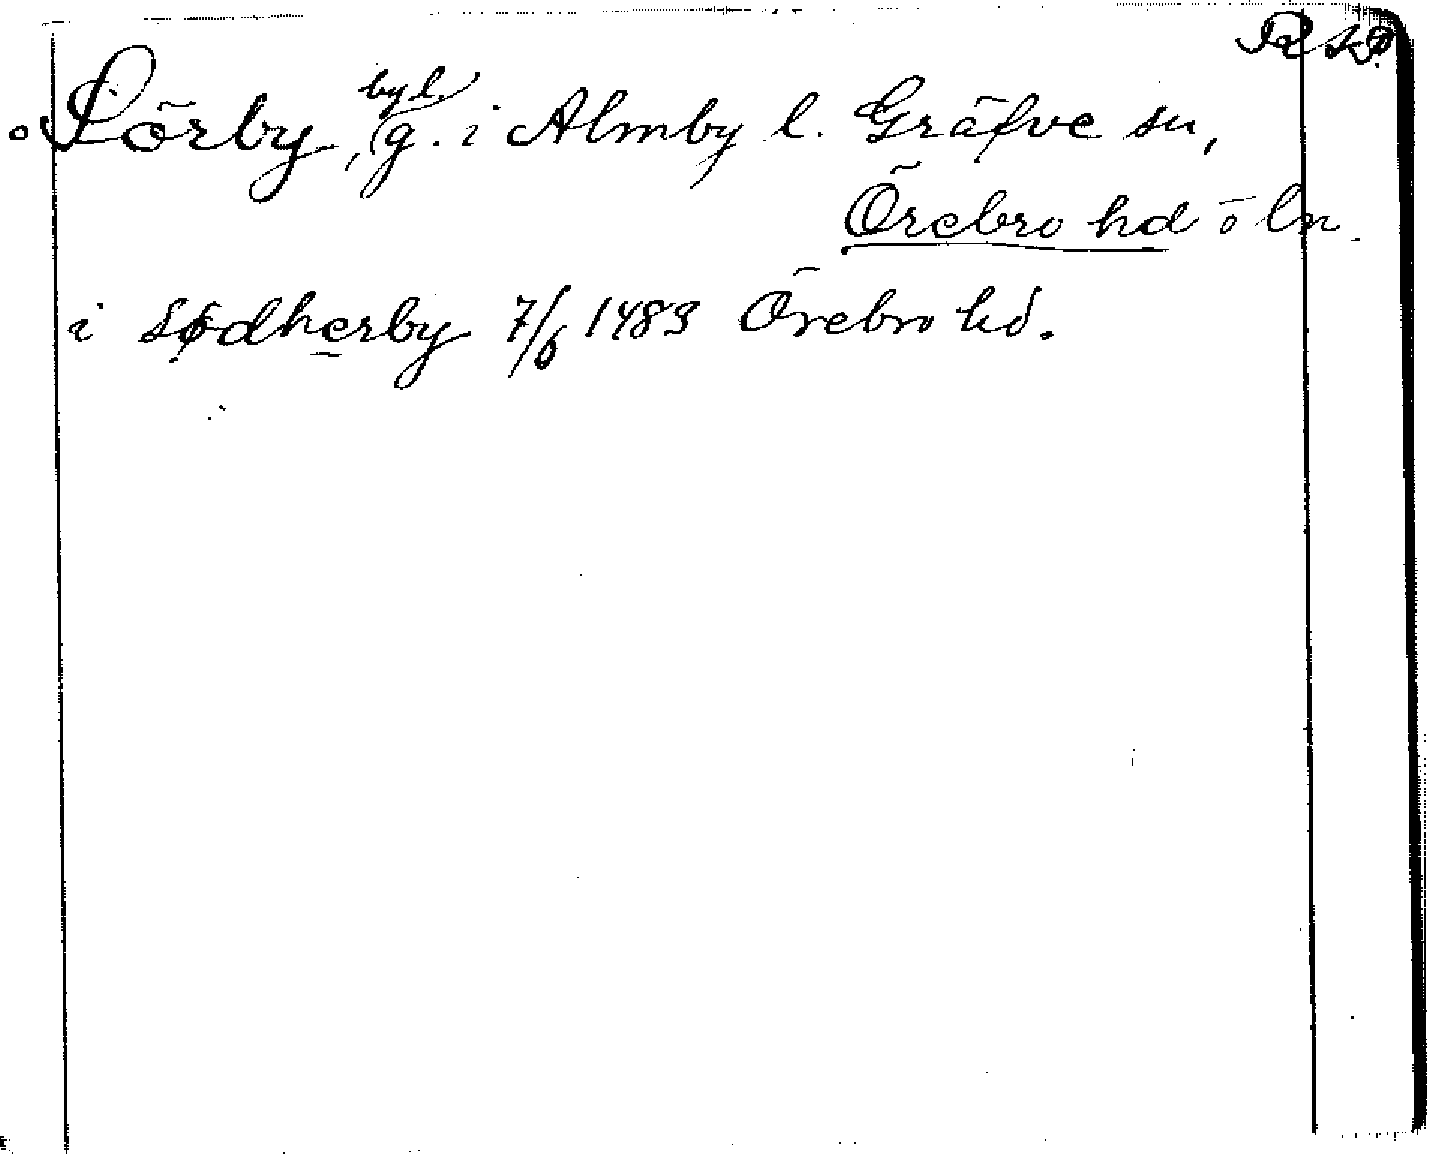 Sörby, byl. (g. i Almby l. Gräfve sn,
Örebro hd o ln.
i Sødherby 7/6 1483 Örebro hd.